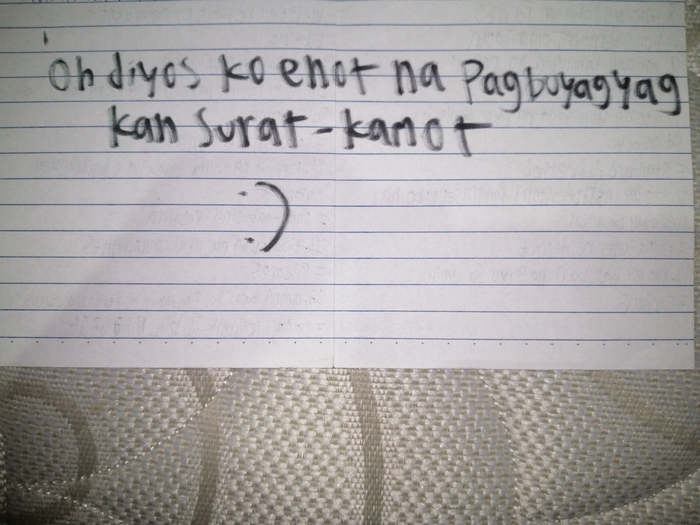 Oh diyos ko enot na Pagbuyagyag
kan surat-kamot
:)